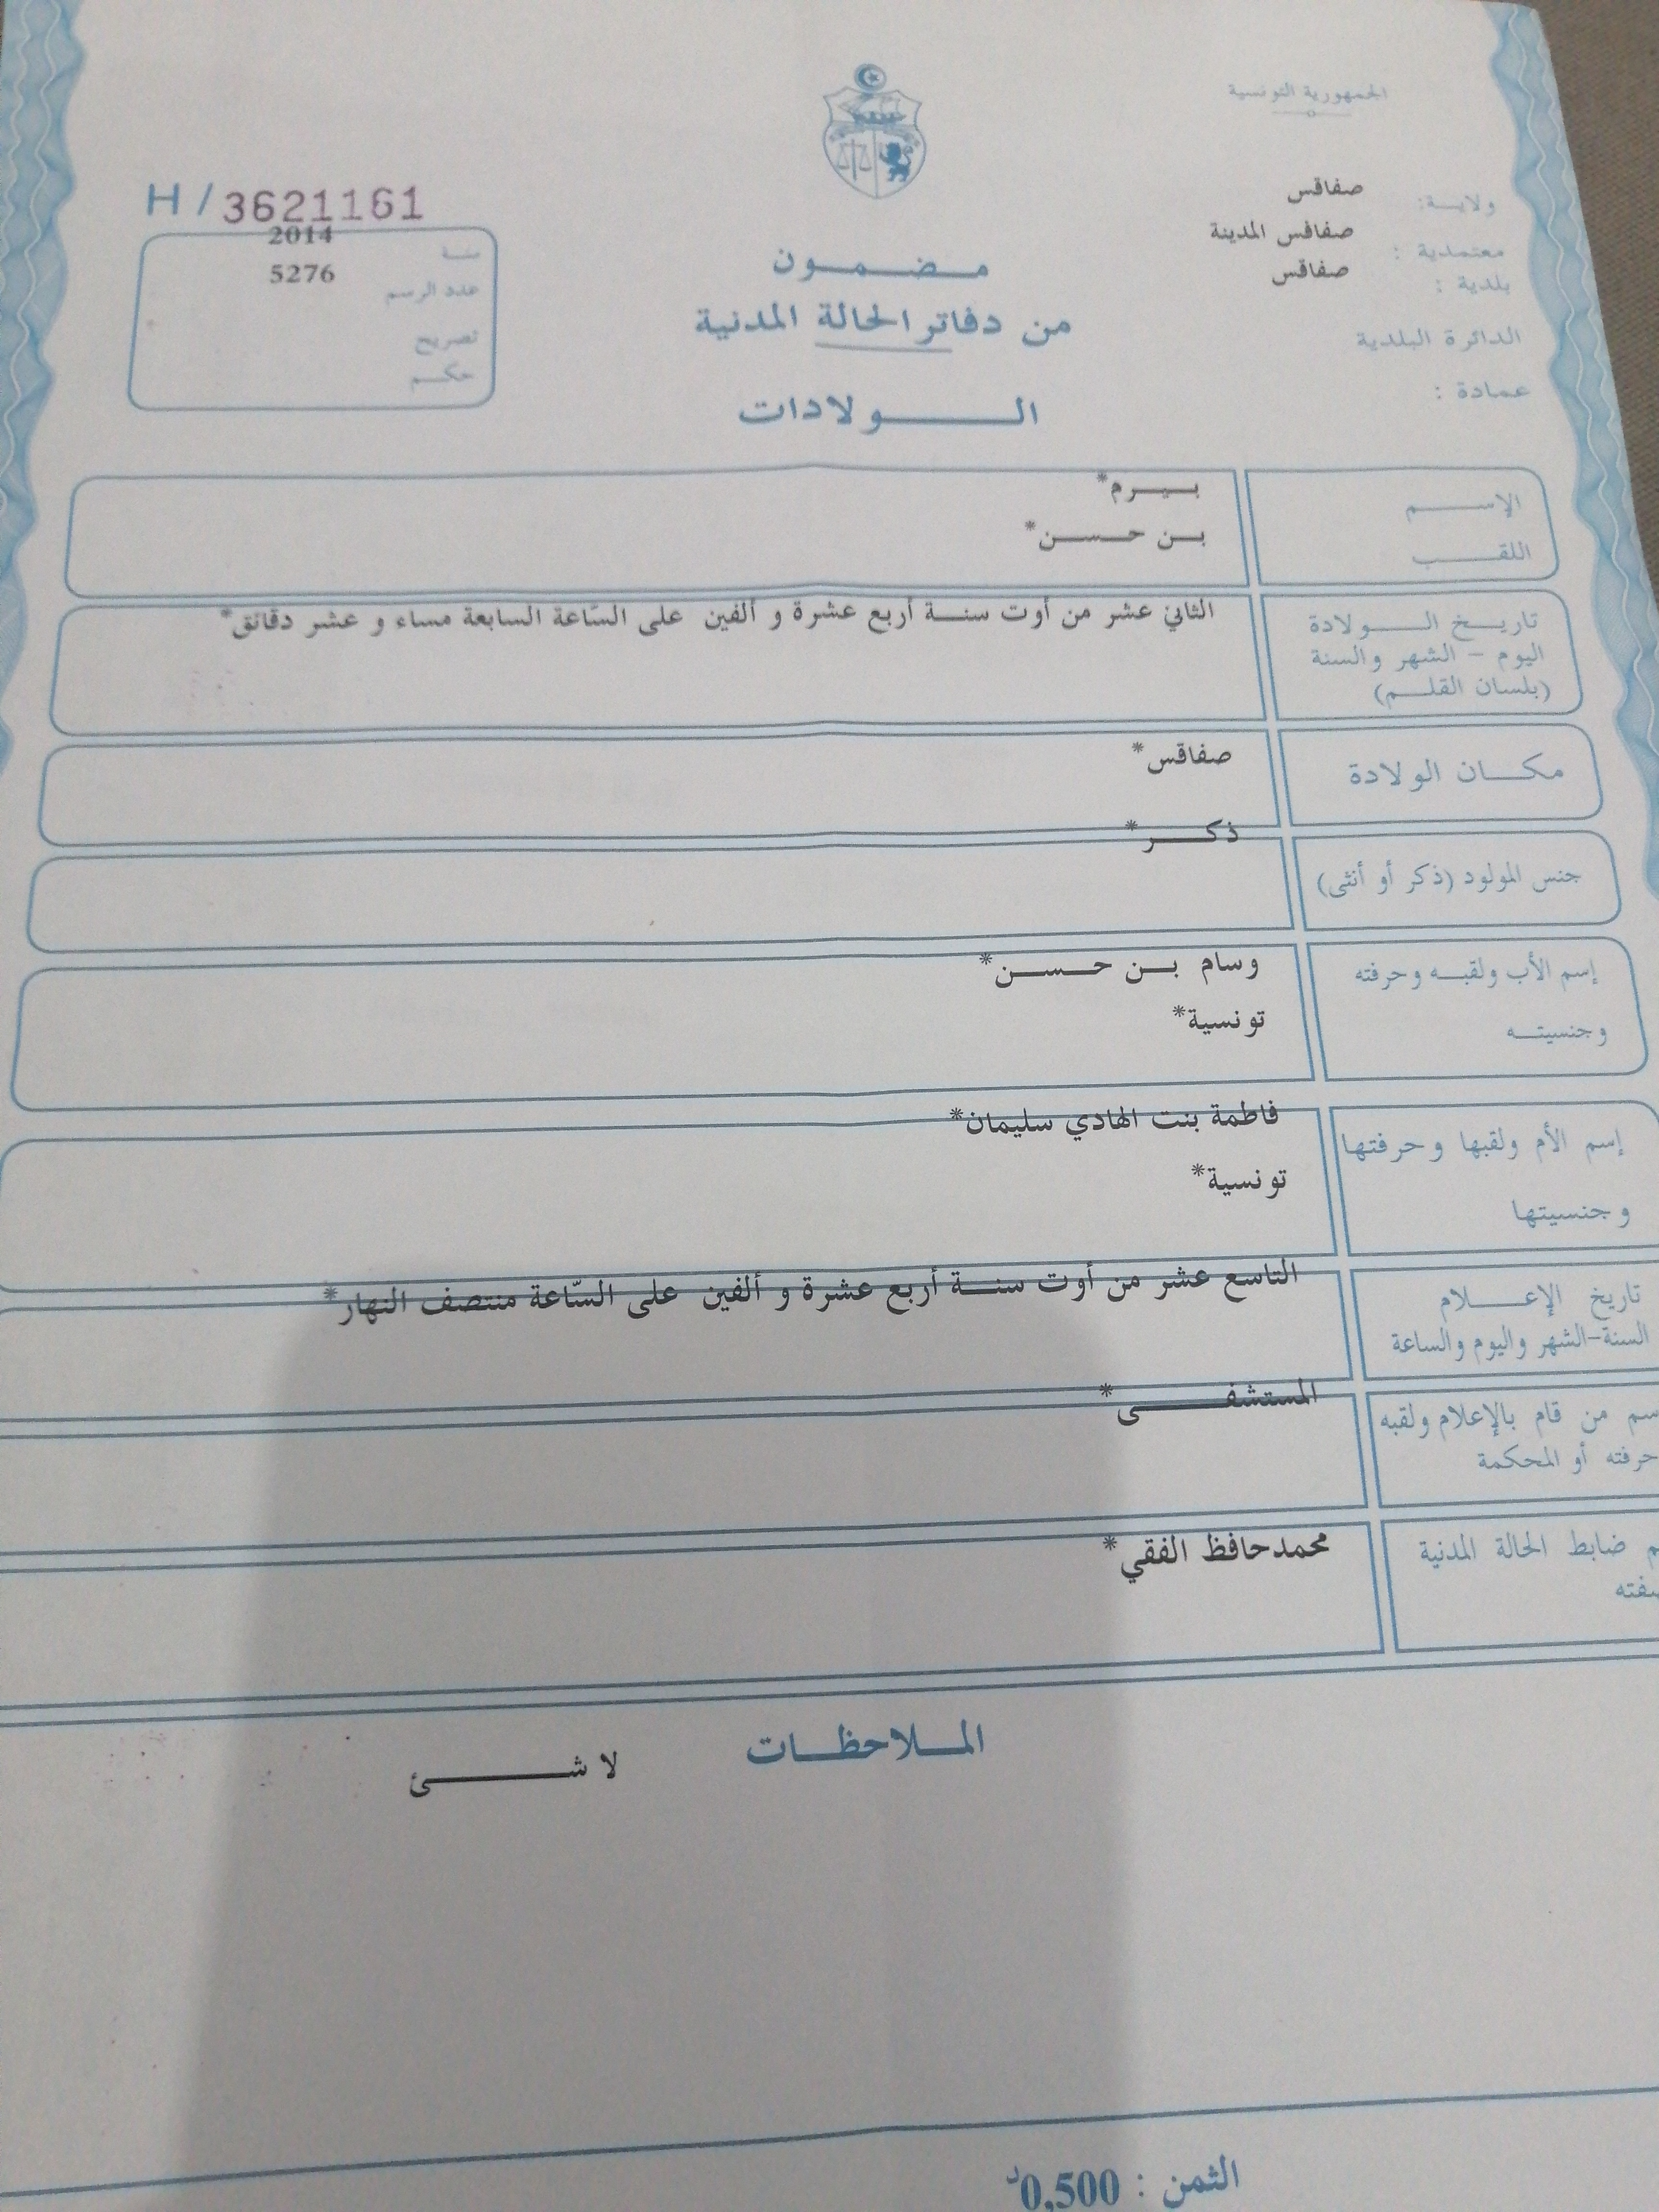 الجمهورية التونسية
ولاية: صفاقس
معتمدية : صفاقس المدينة
بلدية : صفاقس
الدائرة البلدية
عمادة :
H / 3621161
سنة 2014
عدد الرسم 5276
تصريح
حكم
مضمون
من دفاتر الحالة المدنية
الولادات
الإسم بيرم*
اللقب بن حسن*
تاريخ الولادة
اليوم - الشهر والسنة
(بلسان القلم)
الثاني عشر من أوت سنة أربع عشرة و ألفين على السّاعة السابعة مساء و عشر دقائق*
مكان الولادة صفاقس*
جنس المولود (ذكر أو أنثى) ذكر*
إسم الأب ولقبه وحرفته وسام بن حسن*
وجنسيته تونسية*
إسم الأم ولقبها وحرفتها فاطمة بنت الهادي سليمان*
وجنسيتها تونسية*
تاريخ الإعلام
السنة-الشهر واليوم والساعة
التاسع عشر من أوت سنة أربع عشرة و ألفين على السّاعة منتصف النهار*
سم من قام بالإعلام ولقبه المستشفى*
حرفته أو المحكمة
م ضابط الحالة المدنية محمدحافظ الفقي*
فته
الملاحظات
لا شئ
الثمن : 0,500د